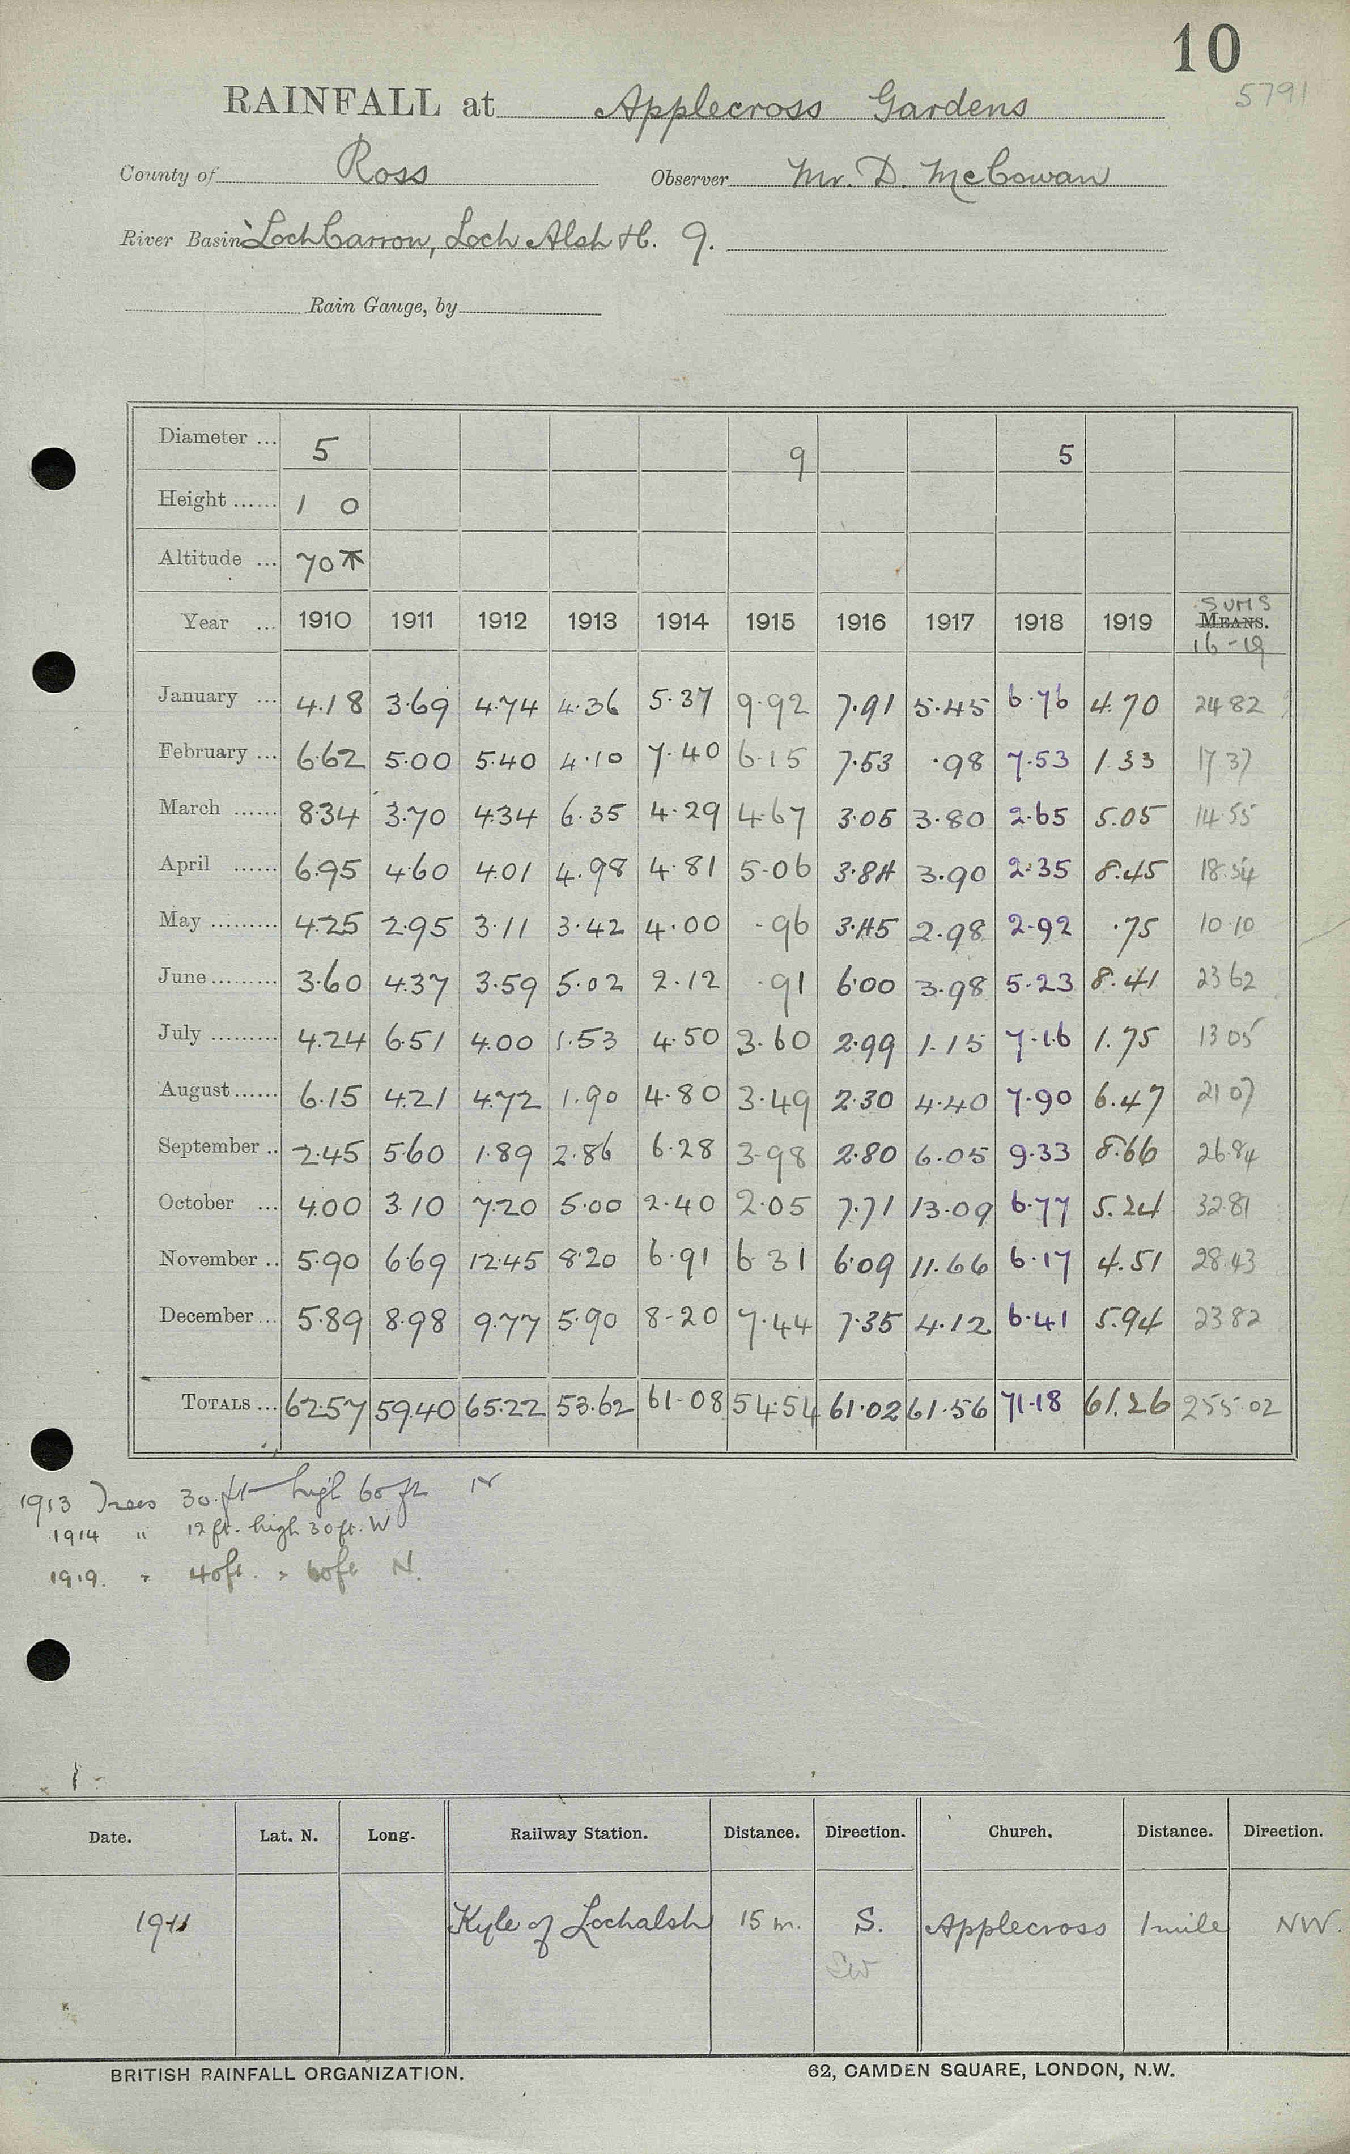 10
5791
RAINFALL at Applecross Gardens
County of Ross Observer Mr. D. McCowan
River Basin Loch Carron, Loch Alsh &c. 9.
Rain Gauge, by
Diameter ... 5 9 5
Height ...... 1 0
Altitude ... 70
Year ... 1910 1911 1912 1913 1914 1915 1916 1917 1918 1919 SUMS MEANS. 16-19
January ... 4.18 3.69 4.74 4.36 5.37 9.92 7.91 5.45 6.76 4.70 24 82
February ... 6.62 5.00 5.40 4.10 7.40 6.15 7.53 .98 7.53 1.33 17 37
March ...... 8.34 3.70 4.34 6.35 4.29 4.67 3.05 3.80 2.65 5.05 14.55
April ...... 6.95 4.60 4.01 4.98 4.81 5.06 3.84 3.90 2.35 8.45 18.54
May ......... 4.25 2.95 3.11 3.42 4.00 .96 3.45 2.98 2.92 .75 10 10
June ......... 3.60 4.37 3.59 5.02 2.12 .91 6.00 3.98 5.23 8.41 23 62
July ......... 4.24 6.51 4.00 1.53 4.50 3.60 2.99 1.15 7.16 1.75 13 05
August ...... 6.15 4.21 4.72 1.90 4.80 3.49 2.30 4.40 7.90 6.47 21 07
September .. 2.45 5.60 1.89 2.86 6.28 3.98 2.80 6.05 9.33 8.66 26.84
October ... 4.00 3.10 7.20 5.00 2.40 2.05 7.71 13.09 6.77 5.24 32.81
November .. 5.90 6.69 12.45 8.20 6.91 6 31 6.09 11.66 6.17 4.51 28.43
December ... 5.89 8.98 9.77 5.90 8.20 7.44 7.35 4.12 6.41 5.94 23 82
TOTALS ... 62.57 59.40 65.22 53.62 61.08 54.54 61.02 61.56 71.18 61.26 255.02
1913 Trees 30 ft high 60 ft N
1914 " 12 ft. high 30 ft. W
1919. " 40 ft. " 60 ft N.
Date. Lat. N. Long. Railway Station. Distance. Direction. Church. Distance. Direction.
1911 Kyle of Lochalsh 15 m. S. Applecross 1 mile NW.
SW
BRITISH RAINFALL ORGANIZATION. 62, CAMDEN SQUARE, LONDON, N.W.